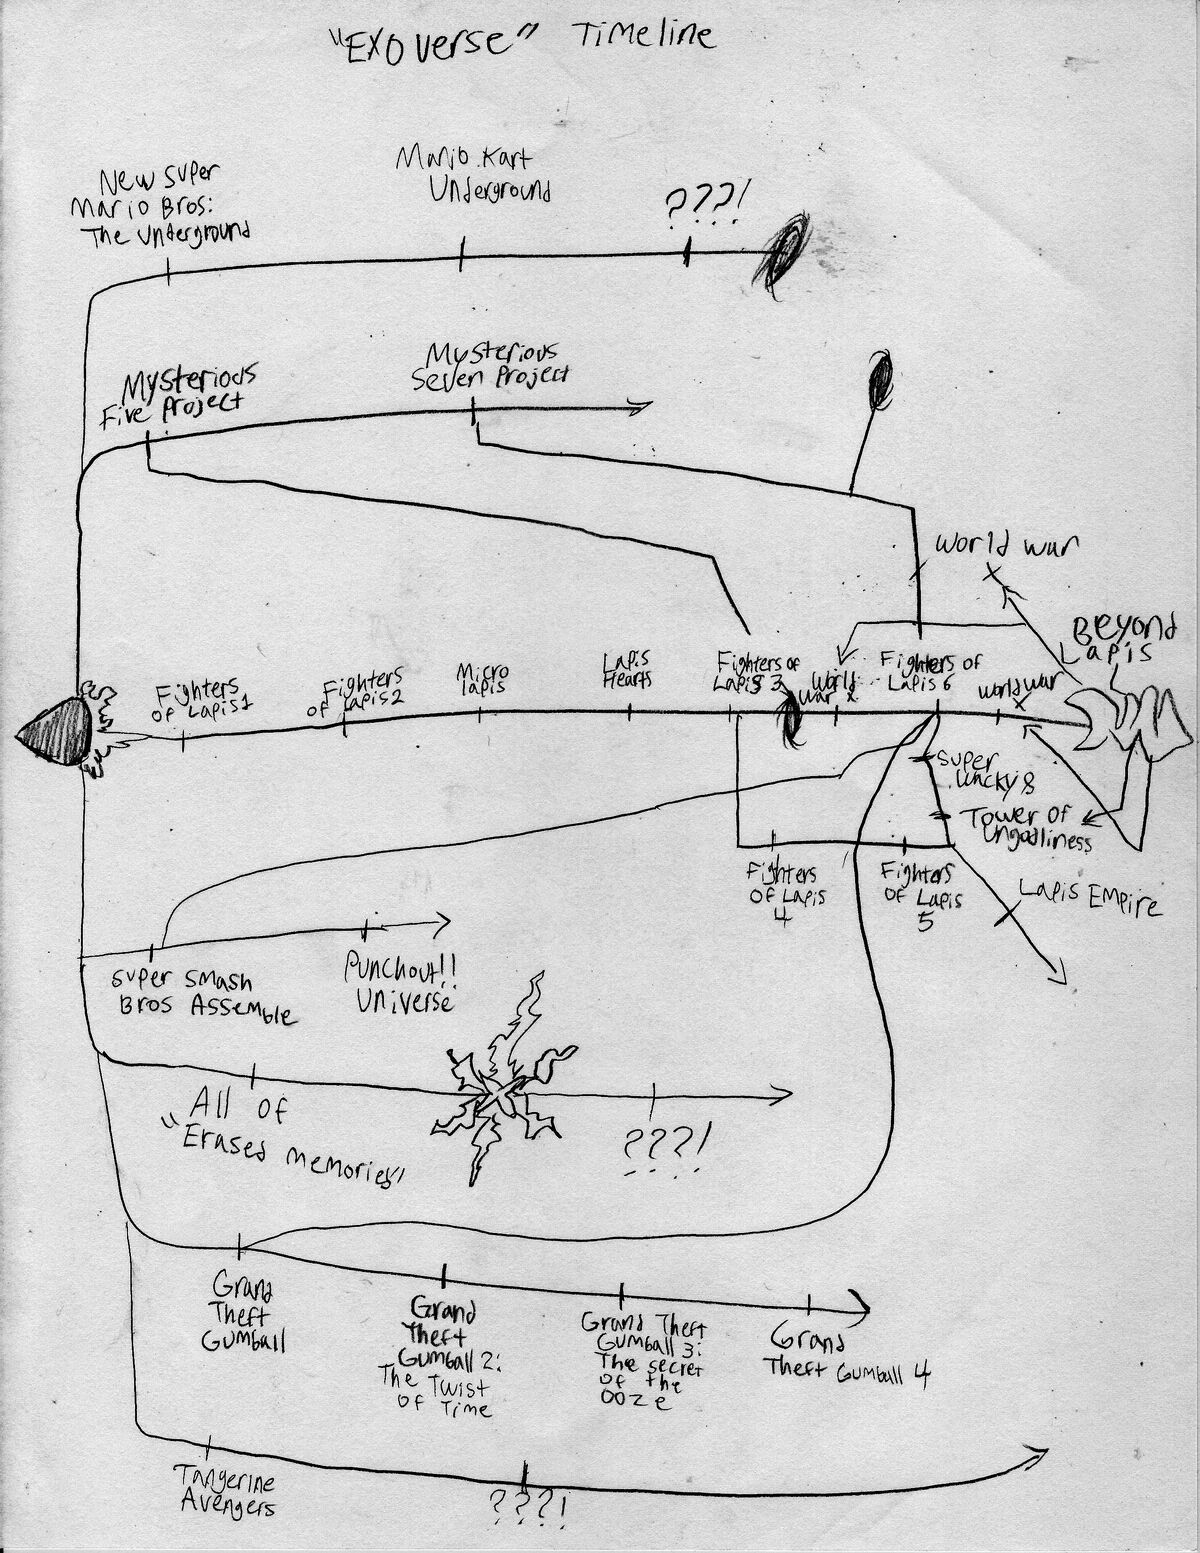 "EXOVERSE" Timeline
New Super
Mario Bros:
The Underground
Mario Kart
Underground
???!
Mysterious
Five Project
Mysterious
Seven Project
World War
Beyond
Lapis
Fighters
of Lapis 1
Fighters
of Lapis 2
Micro
lapis
Lapis
Hearts
Fighters of
Lapis 3
World
War
Fighters of
Lapis 6
World War
Super
Wacky 8
Tower of
Ungodliness
Fighters
Of Lapis
4
Fighters
Of Lapis
5
Lapis Empire
Super Smash
Bros Assemble
Punchout!!
Universe
All of
"Erased memories"
???!
Grand
Theft
Gumball
Grand
Theft
Gumball 2:
The Twist
of Time
Grand Theft
Gumball 3:
The secret
of the
ooze
Grand
Theft Gumball 4
Tangerine
Avengers
???!